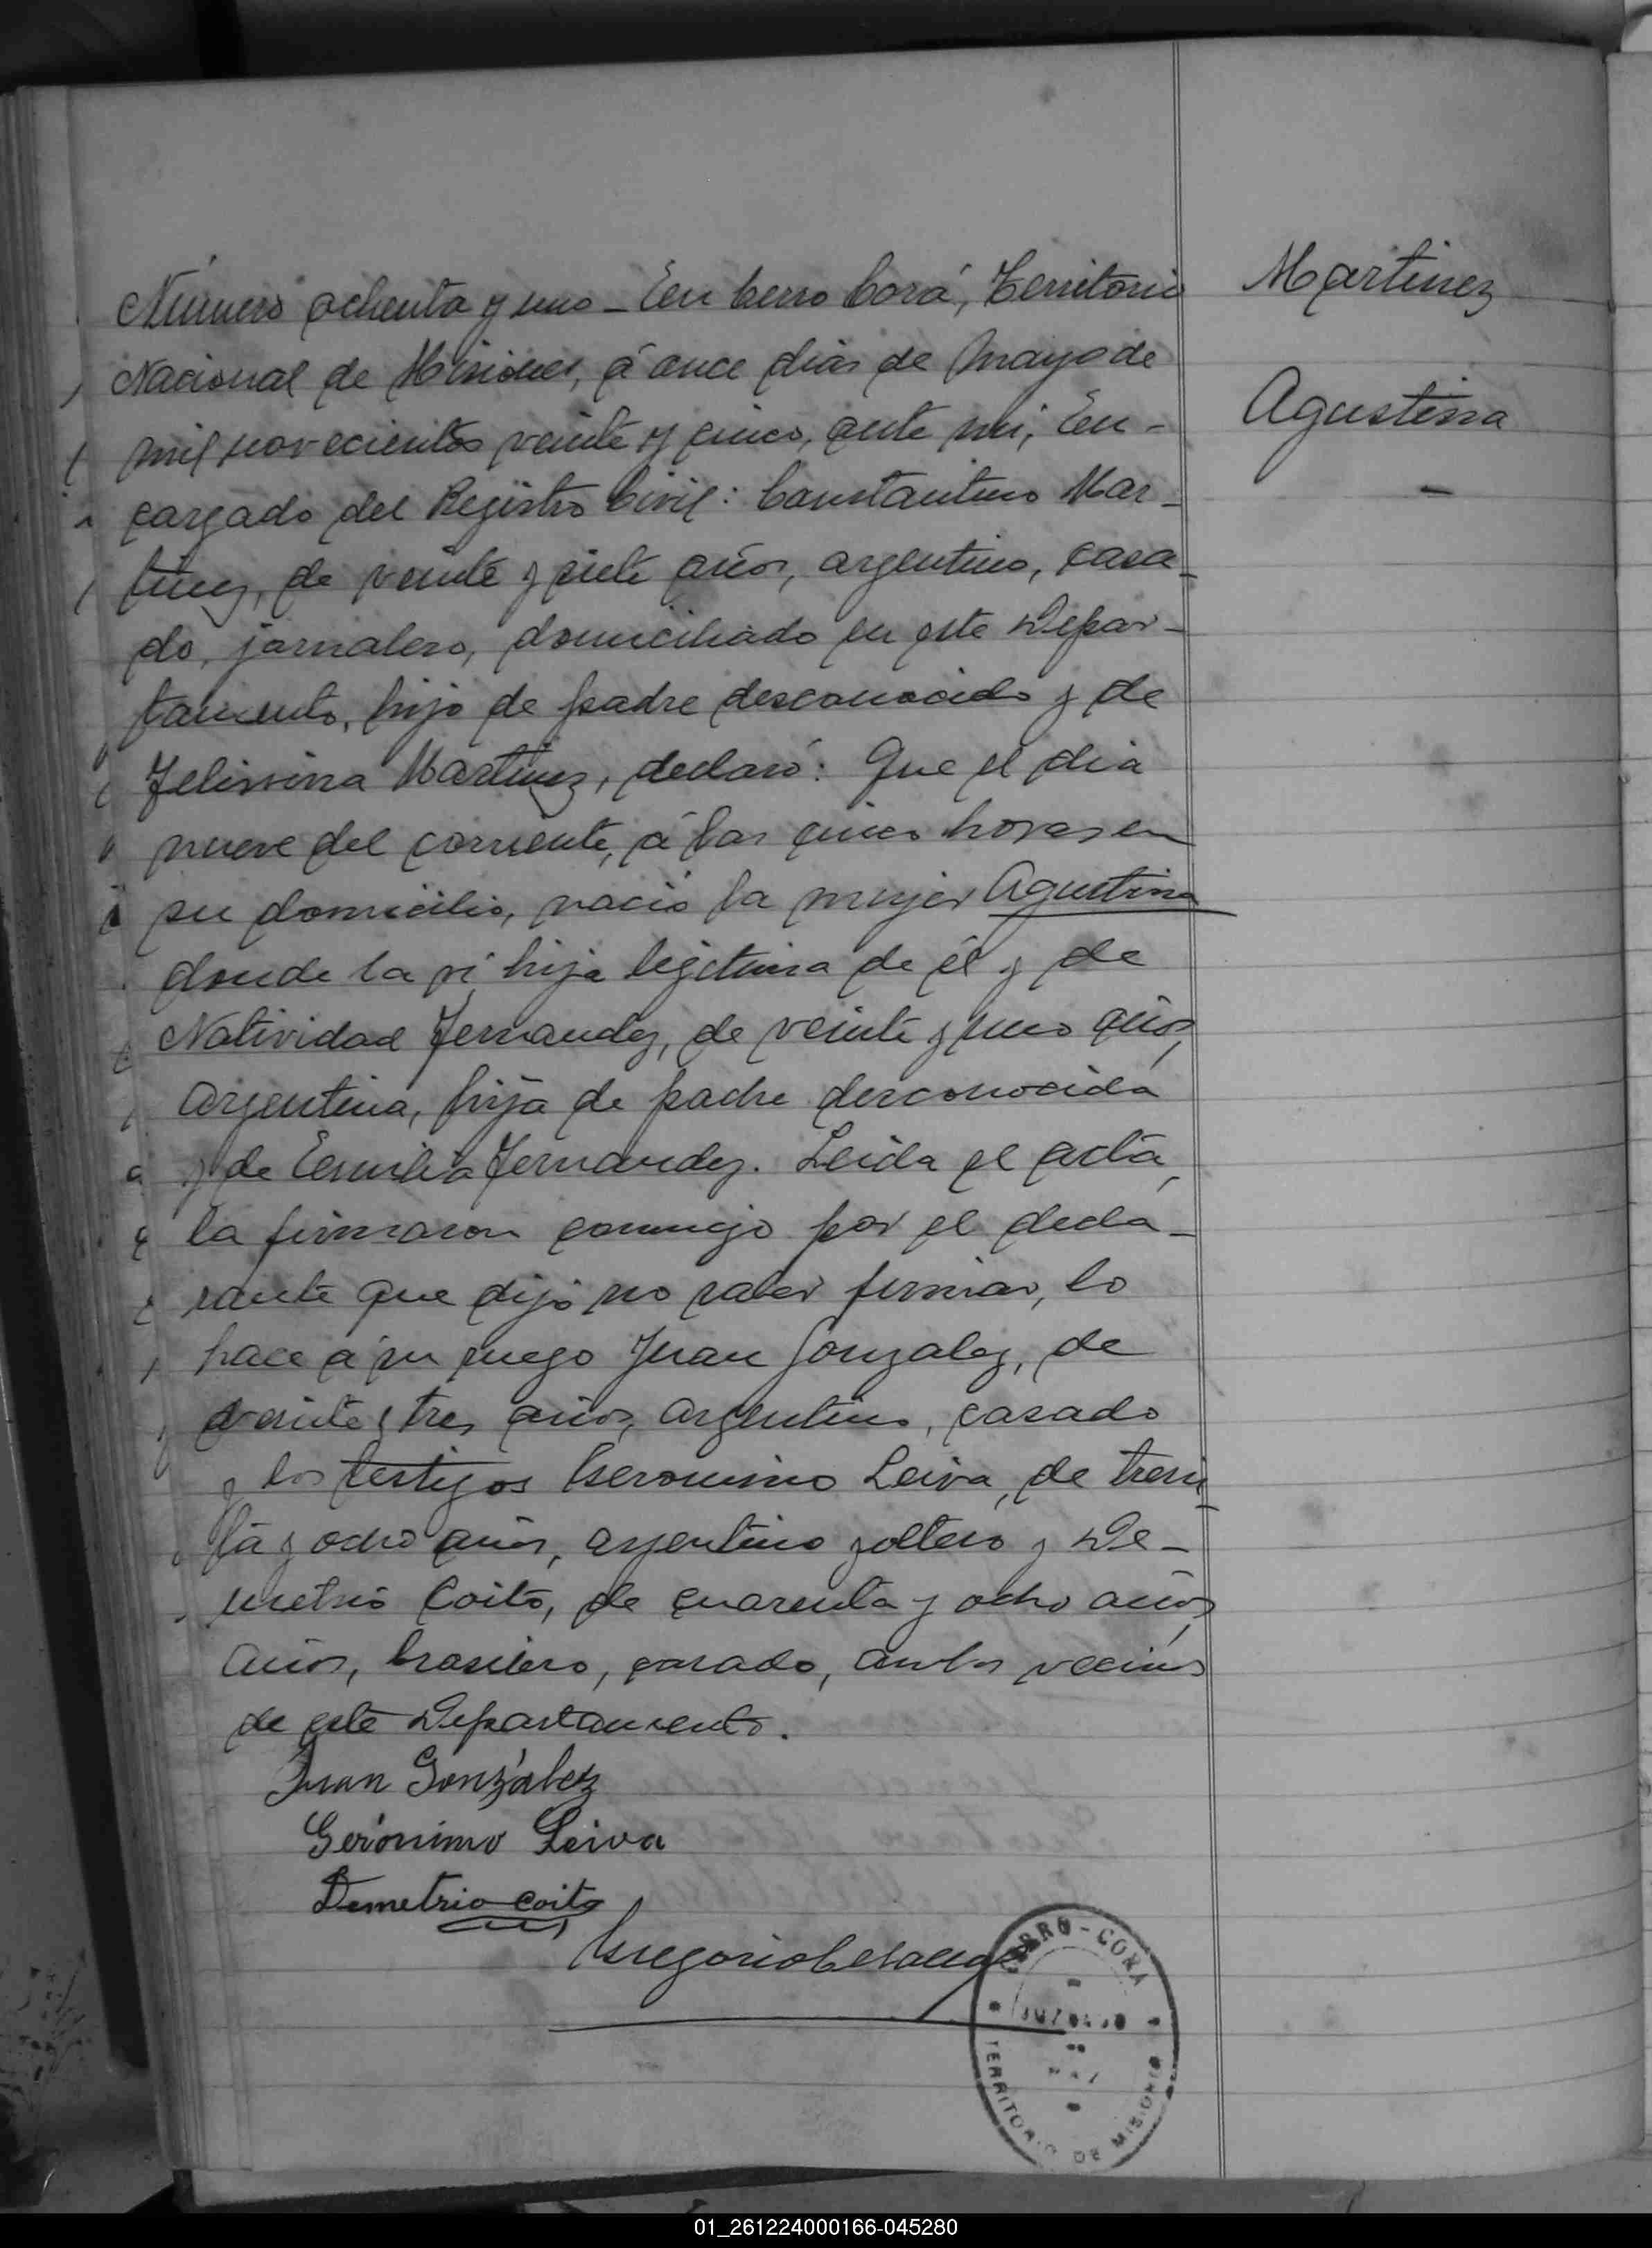 Número ochenta y uno - En Cerro Corá, Territorio
Nacional de Misiones, á once dias de Mayo de
mil novecientos veinte y cinco, ante mi, En-
cargado del Registro Civil: Constantino Mar-
tinez, de veinte y siete años, argentino, casa-
do, jornalero, domiciliado en este Depar-
tamento, hijo de padre desconocido y de
Felissina Martinez, declaró: Que el dia
nueve del corriente, á las cinco horas en
su domicilio, nació la mujer Agustina
donde la ví hija legitima de él y de
Natividad Fernandez, de veinte y uno años,
Argentina, hija de padre desconocida
y de Emilia Fernandez. Leida el acta,
la firmaron conmigo por el decla-
rante que dijo no saber firmar, lo
hace á su ruego Juan Gonzalez, de
veinte y tres años, argentino, casado
y los testigos Geronimo Leiva, de trein-
ta y ocho años, argentino soltero y De-
metrio Coito, de cuarenta y ocho años,
años, brasilero, casado, ambos vecinos
de este Departamento.
Juan González
Gerónimo Leiva
Demetrio Coito
Gregorio
CERRO-CORA
JUZGADO
TERRITORIO DE MISIONES
Martinez
Agustina
-
01_261224000166-045280